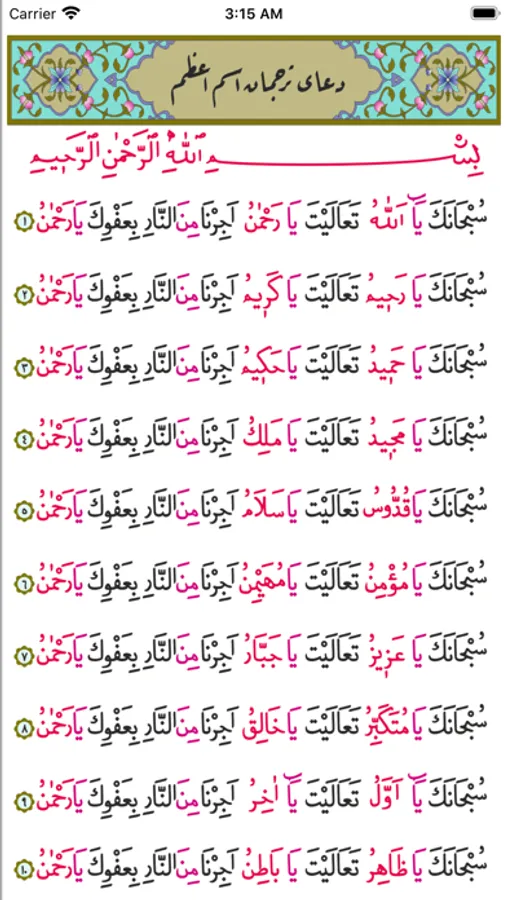 Carrier 3:15 AM
دعای ترجمان اسم اعظم
بِسْمِ ٱللّٰهِ ٱلرَّحْمٰنِ ٱلرَّحٖيمِ
سُبْحَانَكَ يَٓا اَللّٰهُ تَعَالَيْتَ يَا رَحْمٰنُ اَجِرْنَا مِنَ النَّارِ بِعَفْوِكَ يَارَحْمٰنُ ١
سُبْحَانَكَ يَا رَحٖيمُ تَعَالَيْتَ يَا كَرٖيمُ اَجِرْنَا مِنَ النَّارِ بِعَفْوِكَ يَارَحْمٰنُ ٢
سُبْحَانَكَ يَا حَمٖيدُ تَعَالَيْتَ يَا حَكٖيمُ اَجِرْنَا مِنَ النَّارِ بِعَفْوِكَ يَارَحْمٰنُ ٣
سُبْحَانَكَ يَا مَجٖيدُ تَعَالَيْتَ يَا مَلِكُ اَجِرْنَا مِنَ النَّارِ بِعَفْوِكَ يَارَحْمٰنُ ٤
سُبْحَانَكَ يَا قُدُّوسُ تَعَالَيْتَ يَا سَلَامُ اَجِرْنَا مِنَ النَّارِ بِعَفْوِكَ يَارَحْمٰنُ ٥
سُبْحَانَكَ يَا مُؤْمِنُ تَعَالَيْتَ يَا مُهَيْمِنُ اَجِرْنَا مِنَ النَّارِ بِعَفْوِكَ يَارَحْمٰنُ ٦
سُبْحَانَكَ يَا عَزٖيزُ تَعَالَيْتَ يَا جَبَّارُ اَجِرْنَا مِنَ النَّارِ بِعَفْوِكَ يَارَحْمٰنُ ٧
سُبْحَانَكَ يَا مُتَكَبِّرُ تَعَالَيْتَ يَا خَالِقُ اَجِرْنَا مِنَ النَّارِ بِعَفْوِكَ يَارَحْمٰنُ ٨
سُبْحَانَكَ يَٓا اَوَّلُ تَعَالَيْتَ يَٓا اٰخِرُ اَجِرْنَا مِنَ النَّارِ بِعَفْوِكَ يَارَحْمٰنُ ٩
سُبْحَانَكَ يَا ظَاهِرُ تَعَالَيْتَ يَا بَاطِنُ اَجِرْنَا مِنَ النَّارِ بِعَفْوِكَ يَارَحْمٰنُ ١٠